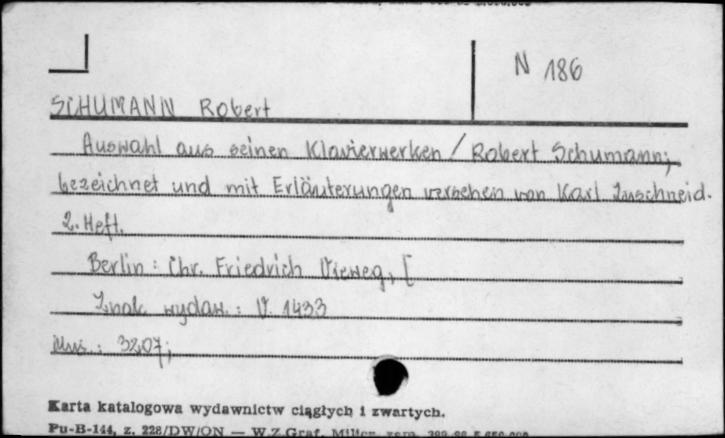 N 186
SCHUMANN Robert
Auswahl aus seinen Klavierwerken / Robert Schumann;
bezeichnet und mit Erläuterungen versehen von Karl Zuschneid.
2. Heft.
Berlin : Chr. Friedrich Vieweg, [
Znak wydaw.: V. 1433
Mus.: 3207;
Karta katalogowa wydawnictw ciągłych i zwartych.
Pu-B-144, z. 228/DW/ON — W.Z.Graf.